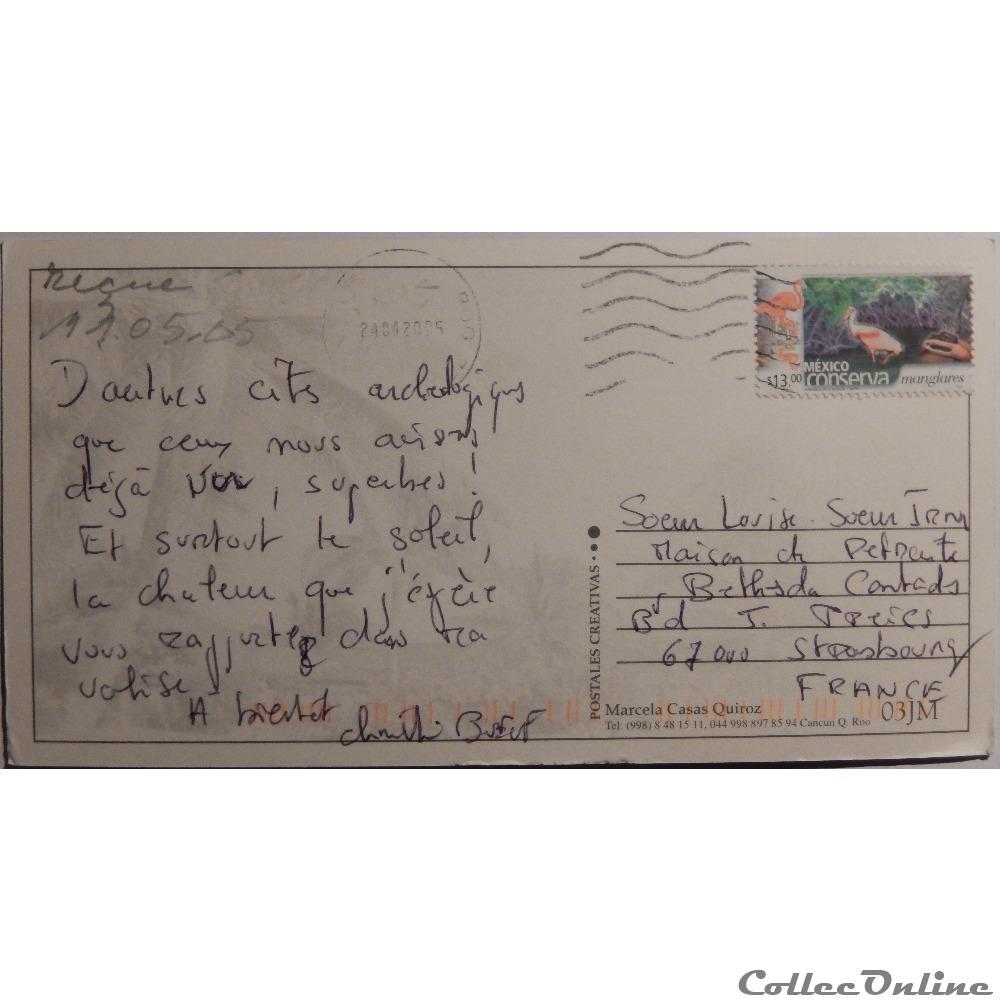 reçue
11 05.05
24042005
D'autres cités archéologiques
que ceux nous avions
déjà vu, superbes!
Et surtout le soleil,
la chaleur que j'éspère
vous rapporter dans ma
valise.
A bientôt
$13.00
MÉXICO
conserva manglares
Soeur Louise. Soeur Irma
Maison de Retraite
Bethesda Contades
Bd J. Preiss
67000 Strasbourg
FRANCE
POSTALES CREATIVAS
Marcela Casas Quiroz
Tel: (998) 8 48 15 11, 044 998 897 85 94 Cancun Q. Roo
03JM
CollecOnline